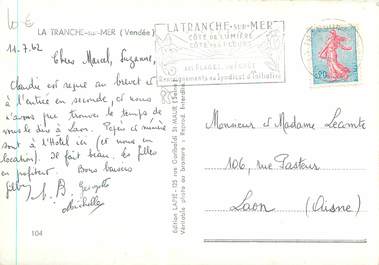 10 €
LA TRANCHE-sur-MER (Vendée)
11.7.62
Chers Marcel, Suzanne,
Claudie est reçue au brevet et à
l'entrée en seconde, et nous
n'avons pas trouver le temps de
vous le dire à Laon. Pépée et mémée
sont à l'Hotel ici (et nous en
location). Il fait beau. les filles
en profitent. Bons baisers
Michelle
104
Edition LAPIE - 125 rue Garibaldi St-MAUR (Seine)
Véritable photo au bromure - Reprod. Interdite
LA TRANCHE-SUR-MER
CÔTE DE LUMIÈRE
CÔTE DES FLEURS
Renseignements au Syndicat d'Initiative
0,20
Monsieur et Madame Lecomte
106, rue Pasteur
Laon (Aisne)